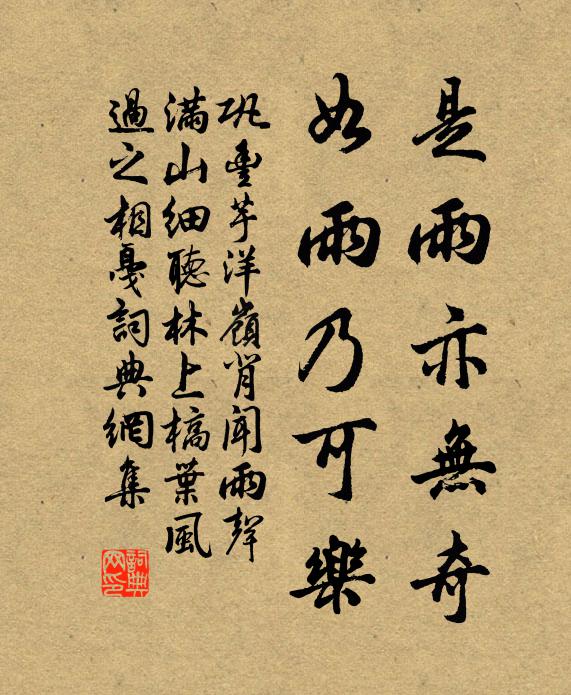 是雨亦無奇
如雨乃可樂
巩豐芋洋嶺背聞雨聲
滿山細聽林上槁葉風
過之相戛詞典網集
詞典网印